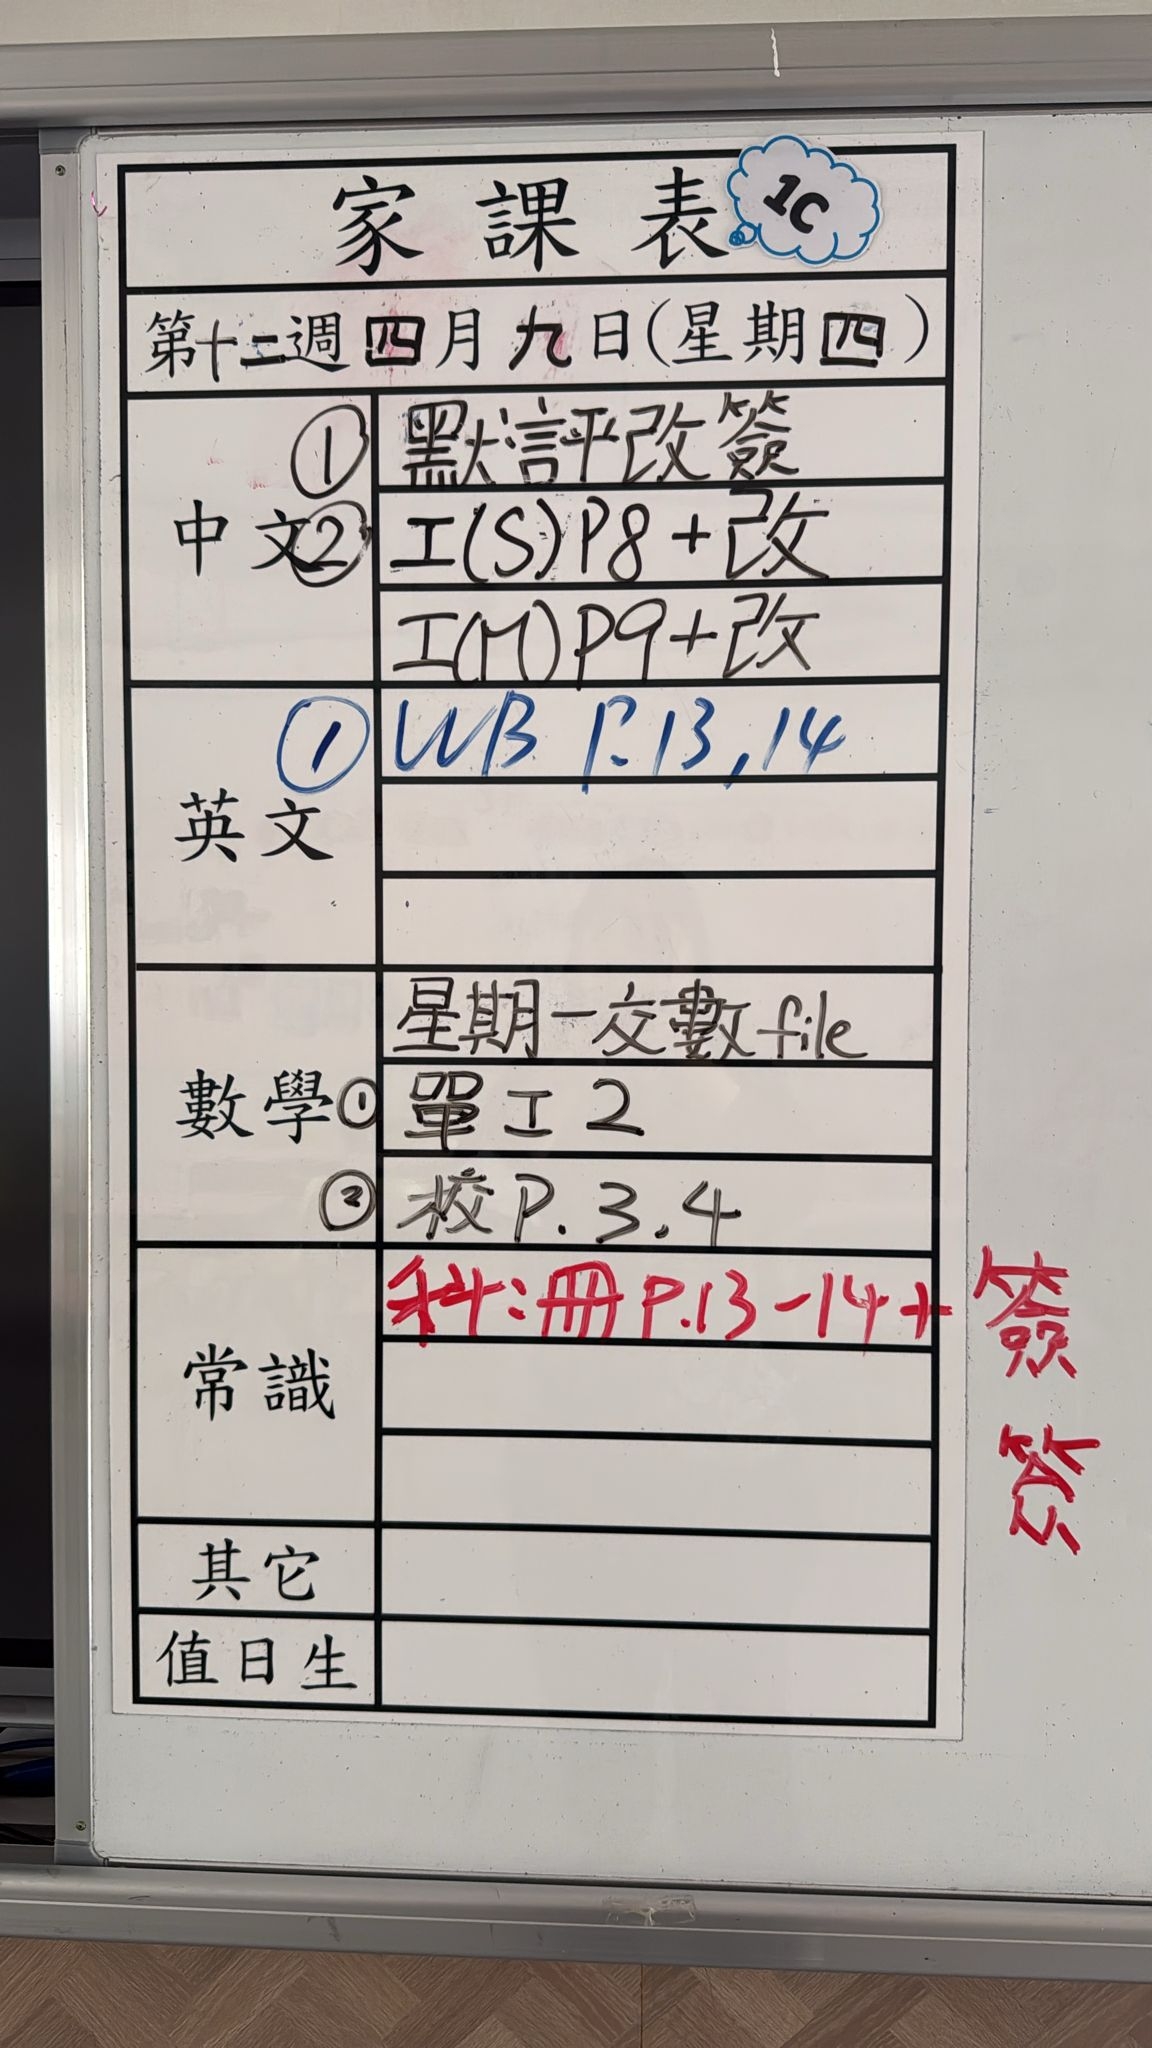 家課表 1C
第十二週四月九日(星期四)
中文
① 默評改簽
② 工(S)P8+改
工(M)P9+改
英文
① WB P.13,14
數學
星期一交數file
① 單工2
② 校P.3.4
常識
科:冊P.13-14+簽
其它
值日生